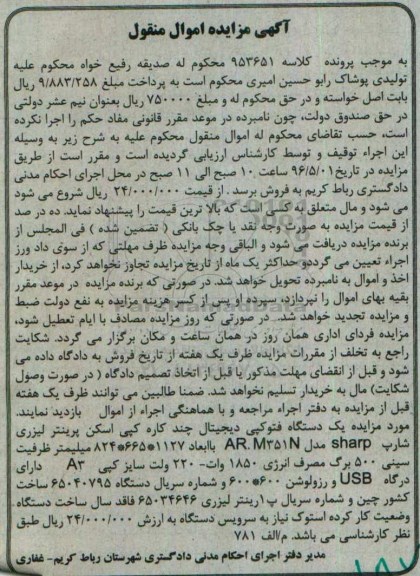 آگهی مزایده اموال منقول
به موجب پرونده کلاسه ۹۵۳۶۵۱ محکوم له صدیقه رفیع خواه محکوم علیه
تولیدی پوشاک رابو حسین امیری محکوم است به پرداخت مبلغ ۹/۸۸۳/۲۵۸ ریال
بابت اصل خواسته و در حق محکوم له و مبلغ ۷۵۰۰۰۰ ریال بعنوان نیم عشر دولتی
در حق صندوق دولت، چون نامبرده در موعد مقرر قانونی مفاد حکم را اجرا نکرده
است، حسب تقاضای محکوم له اموال منقول محکوم علیه به شرح زیر به وسیله
این اجراء توقیف و توسط کارشناس ارزیابی گردیده است و مقرر است از طریق
مزایده در تاریخ ۹۶/۵/۰۱ ساعت ۱۰ صبح الی ۱۱ صبح در محل اجرای احکام مدنی
دادگستری رباط کریم به فروش برسد . از قیمت ۲۴/۰۰۰/۰۰۰ ریال شروع می شود
می شود و مال متعلق به کسی است که بالا ترین قیمت را پیشنهاد نماید. ده در صد
از قیمت مزایده به صورت وجه نقد یا چک بانکی ( تضمین شده ) فی المجلس از
برنده مزایده دریافت می شود و الباقی وجه مزایده ظرف مهلتی که از سوی داد ورز
اجراء تعیین می گرددو حداکثر یک ماه از تاریخ مزایده تجاوز نخواهد کرد، از خریدار
اخذ و اموال به نامبرده تحویل خواهد شد. در صورتی که برنده مزایده در موعد مقرر
بقیه بهای اموال را نپردازد، سپرده او پس از کسر هزینه مزایده به نفع دولت ضبط
و مزایده تجدید خواهد شد. در صورتی که روز مزایده مصادف با ایام تعطیل شود،
مزایده فردای اداری همان روز در همان ساعت و مکان برگزار می گردد. شکایت
راجع به تخلف از مقررات مزایده ظرف یک هفته از تاریخ فروش به دادگاه داده می
شود و قبل از انقضای مهلت مذکور یا قبل از اتخاذ تصمیم دادگاه ( در صورت وصول
شکایت) مال به خریدار تسلیم نخواهد شد. ضمنا طالبین می توانند ظرف یک هفته
قبل از مزایده به دفتر اجراء مراجعه و با هماهنگی اجراء از اموال بازدید نمایند.
مورد مزایده یک دستگاه فتوکپی دیجیتال چند کاره کپی اسکن پرینتر لیزری
شارپ sharp مدل AR.M۳۵۱N باابعاد ۱۱۲۷*۶۶۵*۸۲۴ میلیمتر ظرفیت
سینی ۵۰۰ برگ مصرف انرژی ۱۸۵۰ وات- ۲۲۰ ولت سایز کپی A۳ دارای
درگاه USB و رزولوشن ۶۰۰*۶۰۰ و شماره سریال دستگاه ۶۵۰۴۰۷۹۵ ساخت
کشور چین و شماره سریال پ۱رینتر لیزری ۶۵۰۳۴۶۴۶ فاقد سال ساخت دستگاه
وضعیت کار کرده استوک نیاز به سرویس دستگاه به ارزش ۲۴/۰۰۰/۰۰۰ ریال طبق
نظر کارشناسی می باشد. م/الف ۷۸۱
مدیر دفتر اجرای احکام مدنی دادگستری شهرستان رباط کریم- غفاری